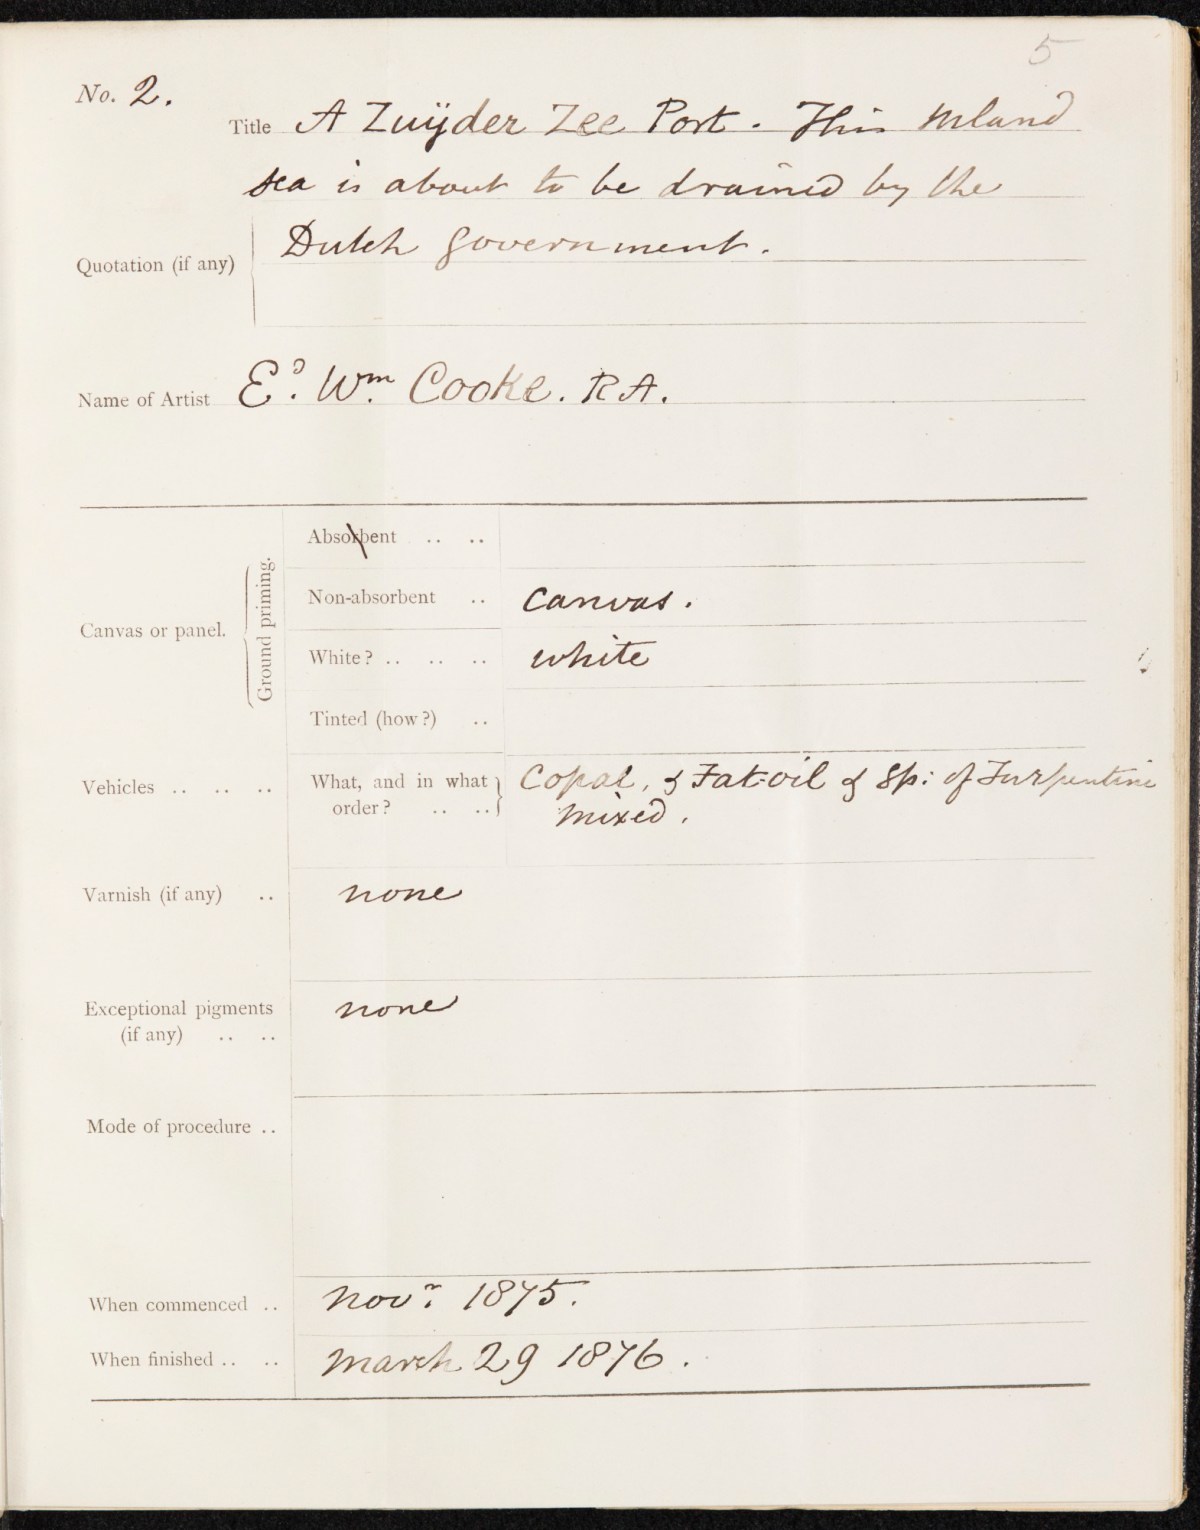 5
No. 2.
Title A Zuÿder Zee Port. This Inland
sea is about to be drained by the
Quotation (if any) Dutch Government.
Name of Artist Ed. Wm. Cooke. RA.
Canvas or panel. Ground priming.
Absorbent .. ..
Non-absorbent .. canvas.
White? .. .. .. white
Tinted (how?) ..
Vehicles .. .. .. What, and in what Copal, & Fat-oil & Sp: of Turpentine
order? .. .. mixed.
Varnish (if any) .. none
Exceptional pigments none
(if any) .. ..
Mode of procedure ..
When commenced .. Novr. 1875.
When finished .. .. March 29 1876.